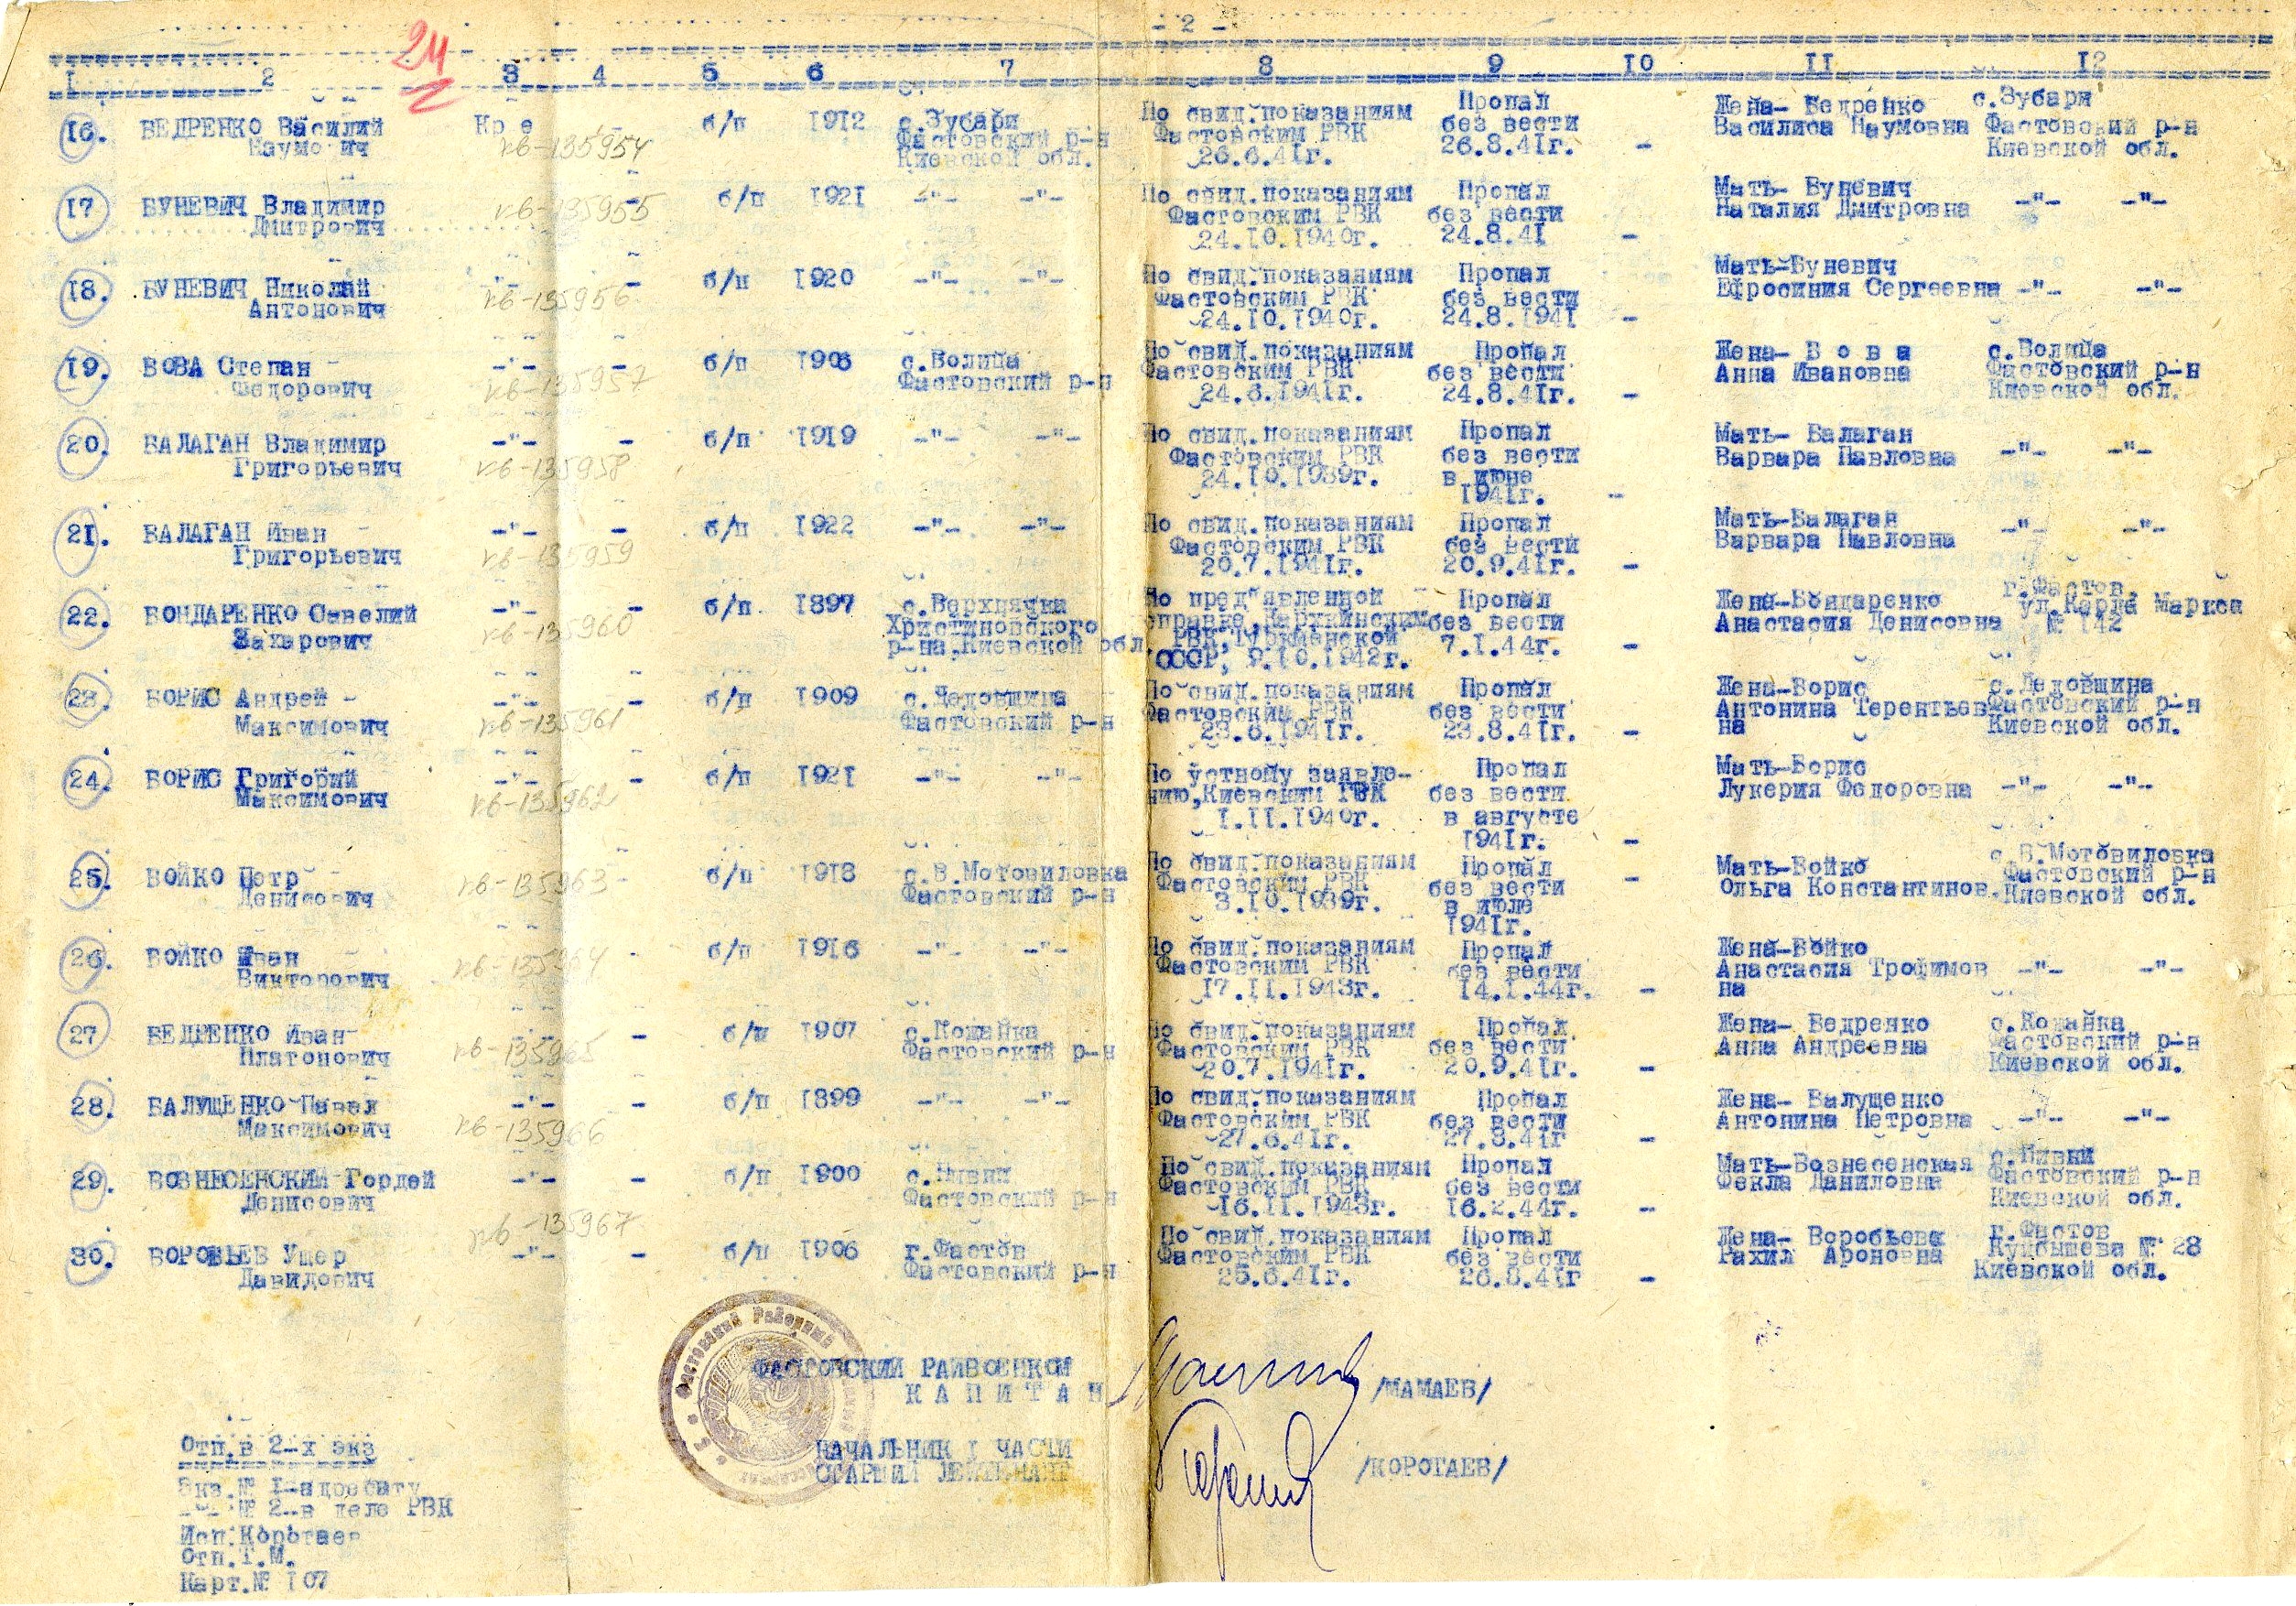 - 2 -
24
1 2 3 4 5 6 7 8 9 10 11 12
16. ВЕДРЕНКО Василий Наумович Кр-е - б/п 1912 с.Зубари Фастовский р-н Киевской обл. По свид.показаниям Фастовским РВК 26.6.41г. Пропал без вести 26.8.41г. - Жена- Ведренко Василиса Наумовна с.Зубари Фастовский р-н Киевской обл.
кв-135954
17 БУНЕВИЧ Владимир Дмитрович -"- - б/п 1921 -"- -"- По свид.показаниям Фастовским РВК 24.10.1940г. Пропал без вести 24.8.41 - Мать- Буневич Наталия Дмитровна -"- -"-
кв-135955
18. БУНЕВИЧ Николай Антонович -"- - б/п 1920 -"- -"- По свид.показаниям Фастовским РВК 24.10.1940г. Пропал без вести 24.8.1941 - Мать-Буневич Ефросиния Сергеевна -"- -"-
кв-135956
19. ВОВА Степан Федорович -"- - б/п 1906 с.Волица Фастовский р-н По свид.показаниям Фастовским РВК 24.6.1941г. Пропал без вести 24.8.41г. - Жена- В о в а Анна Ивановна с.Волица Фастовский р-н Киевской обл.
кв-135957
20. БАЛАГАН Владимир Григорьевич -"- - б/п 1919 -"- -"- По свид.показаниям Фастовским РВК 24.10.1939г. Пропал без вести в июне 1941г. - Мать- Балаган Варвара Павловна -"- -"-
кв-135958
21. БАЛАГАН Иван Григорьевич -"- - б/п 1922 -"- -"- По свид.показаниям Фастовским РВК 20.7.1941г. Пропал без вести 20.9.41г. - Мать-Балаган Варвара Павловна -"- -"-
кв-135959
22. БОНДАРЕНКО Савелий Захарович -"- - б/п 1897 с.Верхнячка Христиновского р-на,Киевской обл. По пред"явленной справке, РВК,Туркменской СССР, 9.10.1942г. Пропал без вести 7.1.44г. - Жена-Бондаренко Анастасия Денисовна г.Фастов, ул.Карла Маркса № 142
кв-135960
23. БОРИС Андрей Максимович -"- - б/п 1909 с.Дедовщина Фастовский р-н По свид.показаниям Фастовским РВК 23.6.1941г. Пропал без вести 23.8.41г. - Жена-Борис Антонина Терентьевна с.Дедовщина Фастовский р-н Киевской обл.
кв-135961
24. БОРИС Григорий Максимович -"- - б/п 1921 -"- -"- По устному заявлению,Киевским ГВК 1.11.1940г. Пропал без вести в августе 1941г. - Мать-Борис Лукерия Федоровна -"- -"-
кв-135962
25. БОЙКО Петр Денисович - б/п 1918 с.В.Мотовиловка Фастовский р-н По свид.показаниям Фастовским РВК 3.10.1939г. Пропал без вести в июле 1941г. - Мать-Бойко Ольга Константинов. с.В.Мотовиловка Фастовский р-н Киевской обл.
кв-135963
26. БОЙКО Иван Викторович - б/п 1916 -"- -"- По свид.показаниям Фастовским РВК 17.11.1943г. Пропал без вести 14.1.44г. - Жена-Бойко Анастасия Трофимовна -"- -"-
кв-135964
27 ВЕДРЕНКО Иван Платонович -"- - б/п 1907 с.Кожанка Фастовский р-н По свид.показаниям Фастовским РВК 20.7.1941г. Пропал без вести 20.9.41г. - Жена- Ведренко Анна Андреевна с.Кожанка Фастовский р-н Киевской обл.
кв-135965
28. БАЛУЩЕНКО Павел Максимович -"- - б/п 1899 -"- -"- По свид.показаниям Фастовским РВК 27.6.41г. Пропал без вести 27.8.41г - Жена- Балущенко Антонина Петровна -"- -"-
кв-135966
29. ВОЗНЕСЕНСКИЙ Гордей Денисович -"- - б/п 1900 с.Пивни Фастовский р-н По свид.показаниям Фастовским РВК 16.11.1943г. Пропал без вести 16.2.44г. - Мать-Вознесенская Фекла Даниловна с.Пивни Фастовский р-н Киевской обл.
кв-135967
30. ВОРОБЬЕВ Ушер Давидович -"- - б/п 1906 г.Фастов Фастовский р-н По свид.показаниям Фастовским РВК 25.6.41г. Пропал без вести 26.8.41г - Жена- Воробьева Рахил Ароновна г.Фастов Куйбышева № 28 Киевской обл.
Фастовский Районный
ФАСТОВСКИЙ РАЙВОЕНКОМ
К А П И Т А Н /МАМАЕВ/
НАЧАЛЬНИК I ЧАСТИ
СТАРШИЙ ЛЕЙТЕНАНТ /КОРОТАЕВ/
Отп.в 2-х экз
Экз.№ 1-адресату
-"- № 2-в дело РВК
Исп.Коротаев
Отп.Т.М.
Карт.№ 107